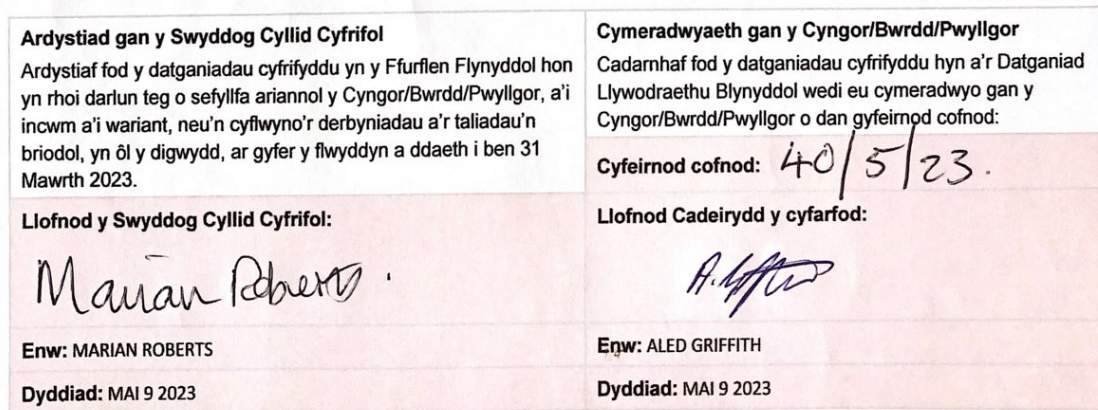 Ardystiad gan y Swyddog Cyllid Cyfrifol
Ardystiaf fod y datganiadau cyfrifyddu yn y Ffurflen Flynyddol hon
yn rhoi darlun teg o sefyllfa ariannol y Cyngor/Bwrdd/Pwyllgor, a'i
incwm a'i wariant, neu'n cyflwyno'r derbyniadau a'r taliadau'n
briodol, yn ôl y digwydd, ar gyfer y flwyddyn a ddaeth i ben 31
Mawrth 2023.
Llofnod y Swyddog Cyllid Cyfrifol:
Marian Roberts.
Enw: MARIAN ROBERTS
Dyddiad: MAI 9 2023
Cymeradwyaeth gan y Cyngor/Bwrdd/Pwyllgor
Cadarnhaf fod y datganiadau cyfrifyddu hyn a'r Datganiad
Llywodraethu Blynyddol wedi eu cymeradwyo gan y
Cyngor/Bwrdd/Pwyllgor o dan gyfeirnod cofnod:
Cyfeirnod cofnod: 40/5/23.
Llofnod Cadeirydd y cyfarfod:
Enw: ALED GRIFFITH
Dyddiad: MAI 9 2023